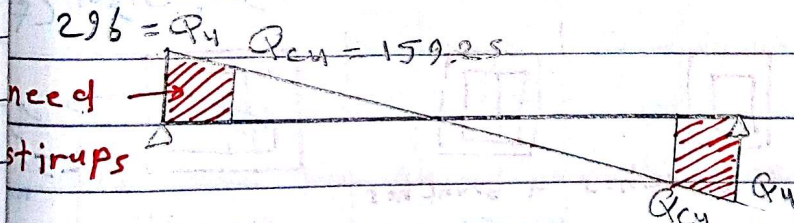 296 = Qu
Qcu = 159.25
need
stirups
Qcu
Qu